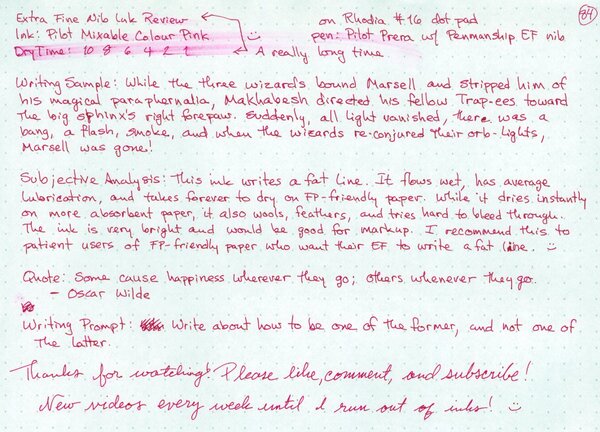 Extra Fine Nib Ink Review on Rhodia #16 dot pad 84
Ink: Pilot Mixable Colour Pink pen: Pilot Prera w/ Penmanship EF nib
Dry Time: 10 8 6 4 2 1 A really long time
Writing Sample: While the three wizards bound Marsell and stripped him of
his magical paraphernalia, Makhabesh directed his fellow Trap-ees toward
the big sphinx's right forepaw. Suddenly, all light vanished, there was a
bang, a flash, smoke, and when the wizards re-conjured their orb-lights,
Marsell was gone!
Subjective Analysis: This ink writes a fat line. It flows wet, has average
lubrication, and takes forever to dry on FP-friendly paper. While it dries instantly
on more absorbent paper, it also wools, feathers, and tries hard to bleed through.
The ink is very bright and would be good for markup. I recommend this to
patient users of FP-friendly paper who want their EF to write a fat line. :)
Quote: Some cause happiness wherever they go; others whenever they go.
- Oscar Wilde
Writing Prompt: Write about how to be one of the former, and not one of
the latter.
Thanks for watching! Please like, comment, and subscribe!
New videos every week until I run out of inks! :)